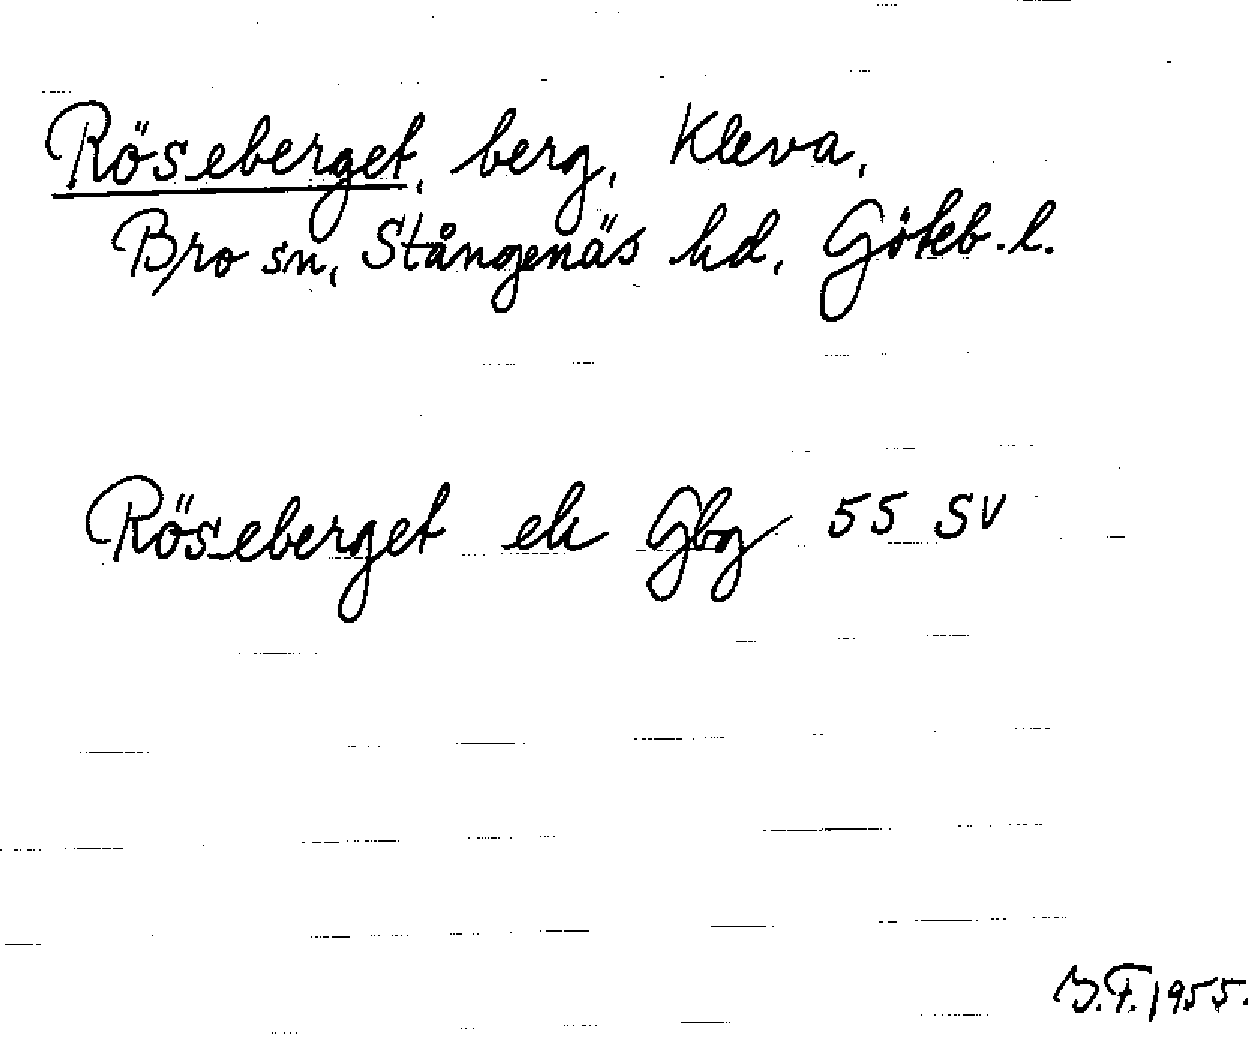 Röseberget, berg, Kleva,
Bro sn, Stångenäs hd, Göteb. l.
Röseberget ek Gbg 55 SV
B.F. 1955.